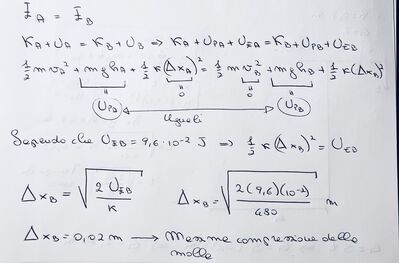 E_A = E_B
K_A + U_A = K_B + U_B ⇒ K_A + U_PA + U_EA = K_B + U_PB + U_EB
½ m v_A² + m g h_A + ½ K (Δx_A)² = ½ m v_B² + m g h_B + ½ K (Δx_B)²
= = = =
U_PB 0 0 U_PB
uguali
Sapendo che U_EB = 9,6 · 10⁻² J ⇒ ½ K (Δx_B)² = U_EB
Δx_B = √(2 U_EB / K) Δx_B = √(2 (9,6)(10⁻²) / 480) m
Δx_B = 0,02 m → Massima compressione della
molla